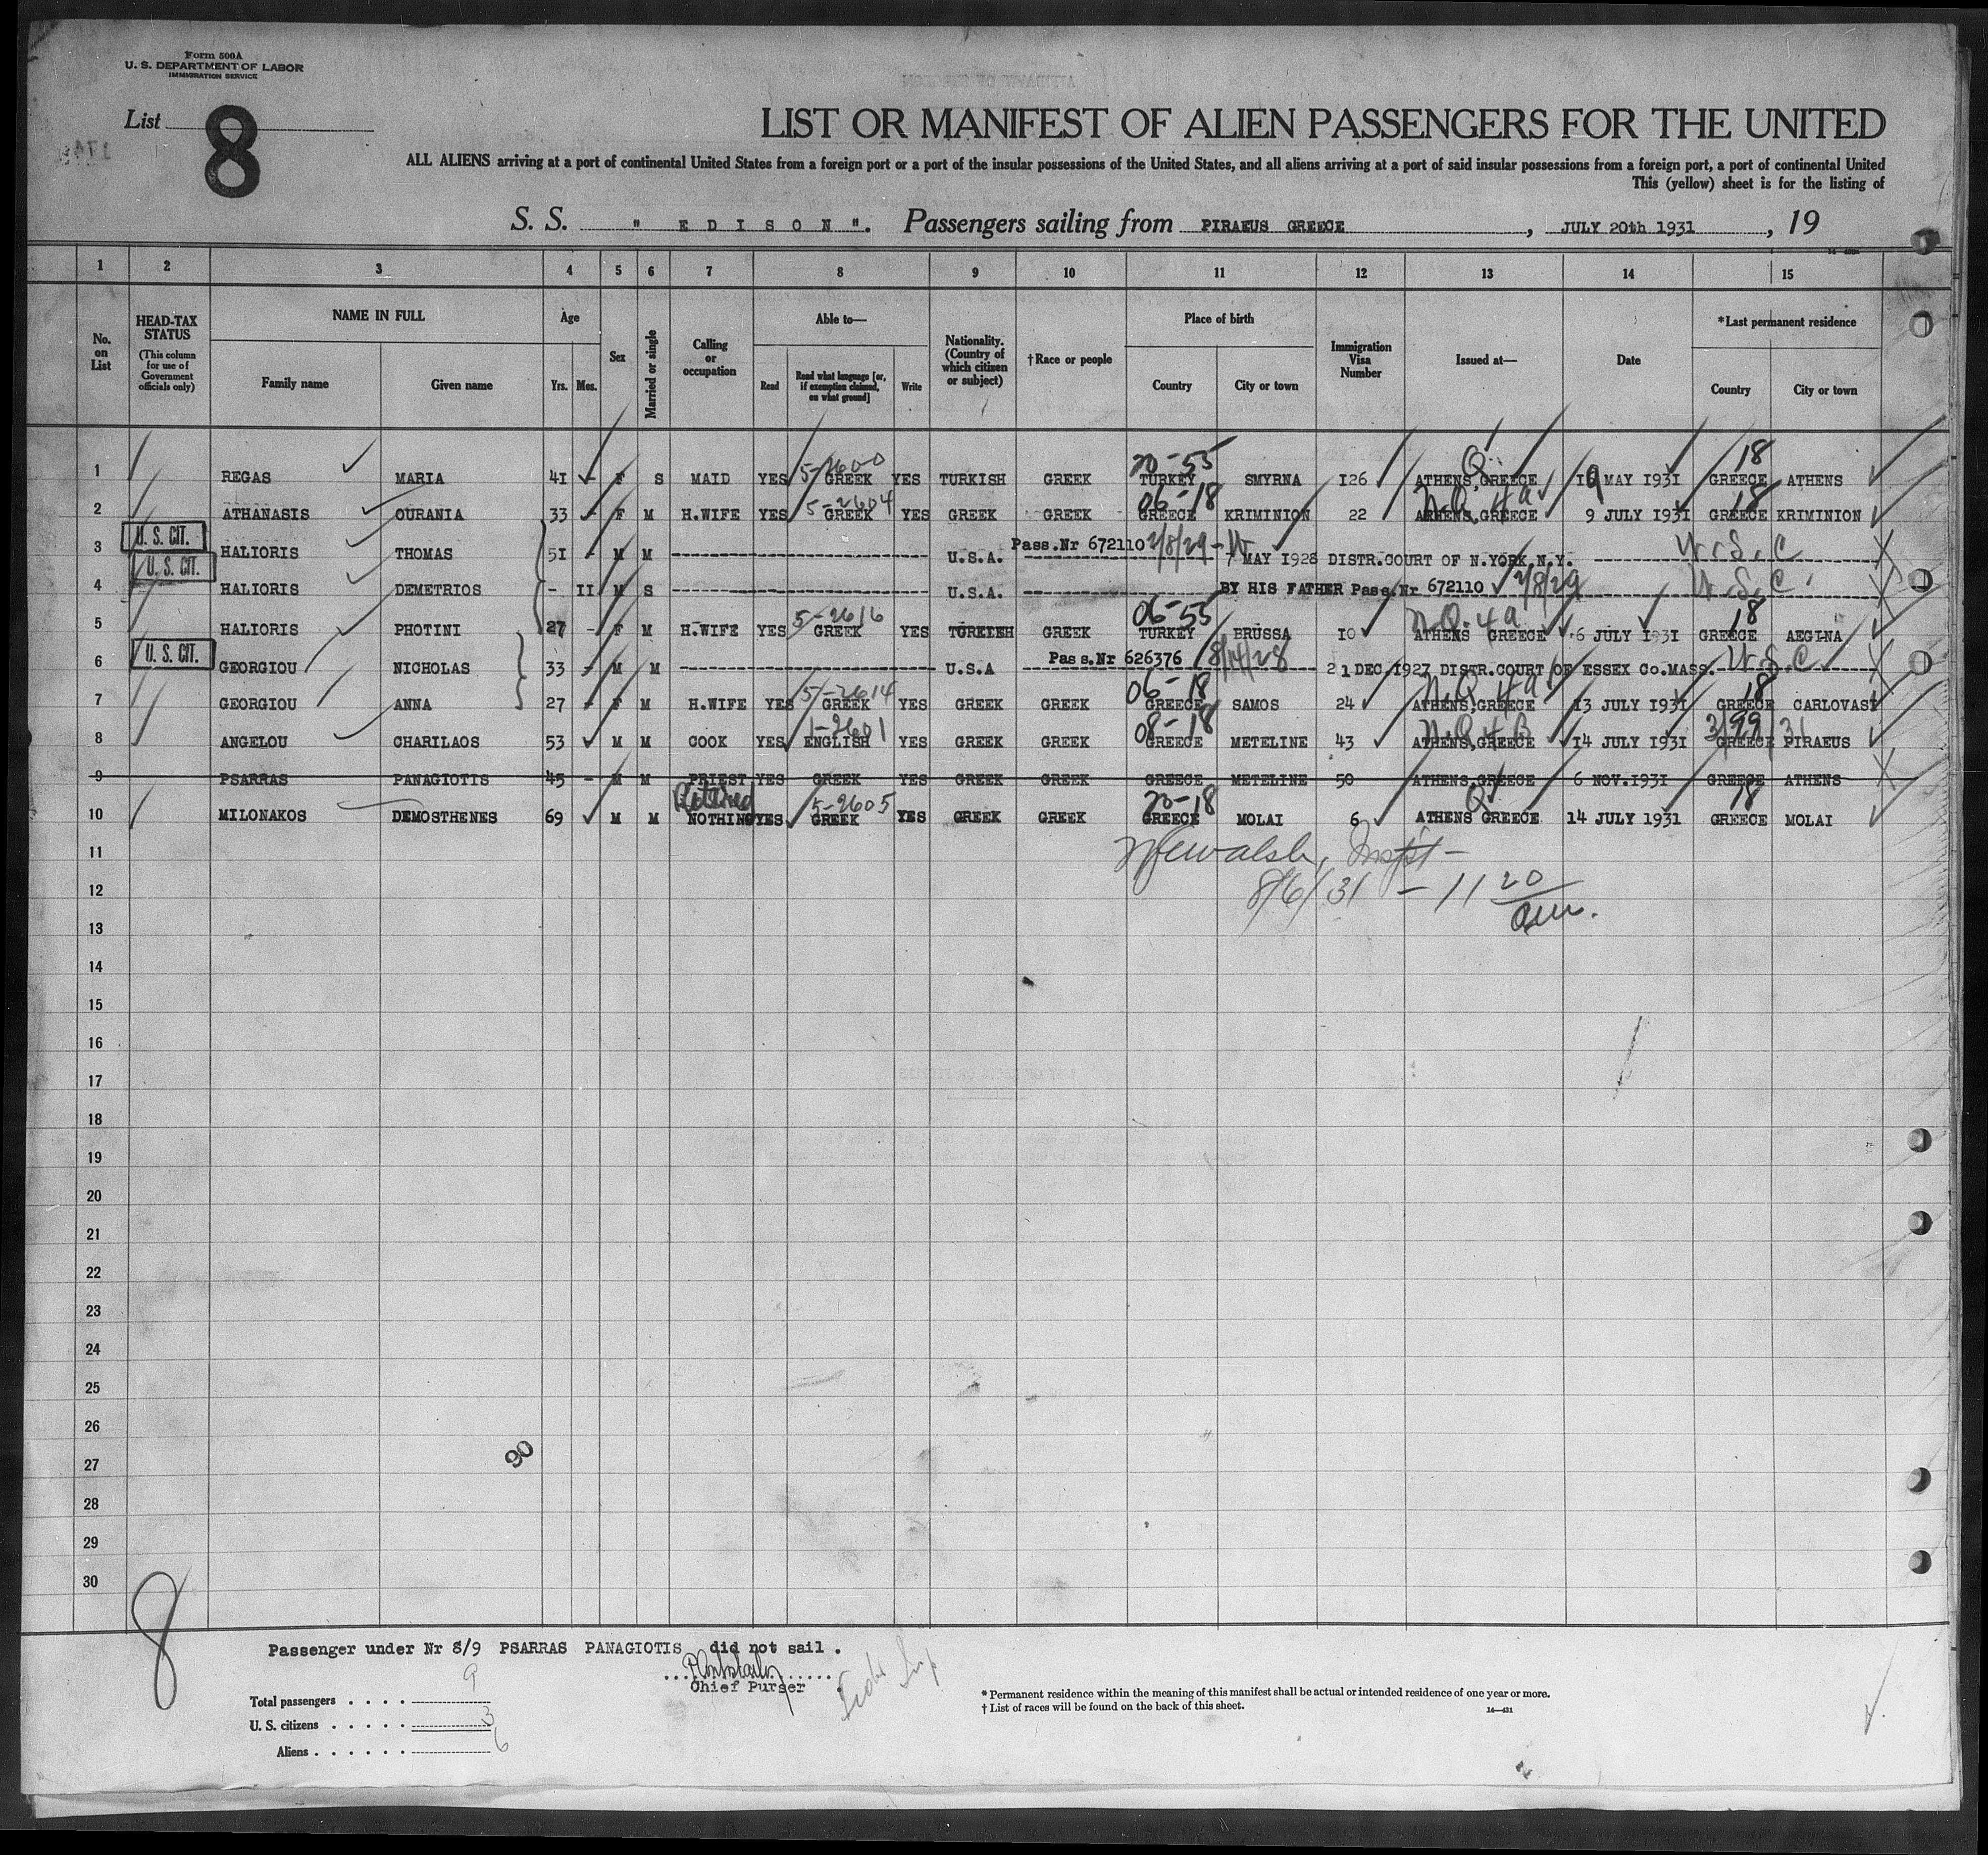 Form 500A
U. S. DEPARTMENT OF LABOR
IMMIGRATION SERVICE
List 8
LIST OR MANIFEST OF ALIEN PASSENGERS FOR THE UNITED
ALL ALIENS arriving at a port of continental United States from a foreign port or a port of the insular possessions of the United States, and all aliens arriving at a port of said insular possessions from a foreign port, a port of continental United
This (yellow) sheet is for the listing of
S. S. " E D I S O N ". Passengers sailing from PIRAEUS GREECE, JULY 20th 1931, 19
1 2 3 4 5 6 7 8 9 10 11 12 13 14 15
No. on List
HEAD-TAX STATUS
(This column for use of Government officials only)
NAME IN FULL
Family name Given name
Age
Yrs. Mos.
Sex
Married or single
Calling or occupation
Able to—
Read Read what language [or, if exemption claimed, on what ground] Write
Nationality. (Country of which citizen or subject)
†Race or people
Place of birth
Country City or town
Immigration Visa Number
Issued at—
Date
*Last permanent residence
Country City or town
5-2600 20-55 Q 18
1 REGAS MARIA 41 - F S MAID YES GREEK YES TURKISH GREEK TURKEY SMYRNA 126 ATHENS,GREECE 19 MAY 1931 GREECE ATHENS
5-2604 06-18 N.Q. 4a 18
2 ATHANASIS OURANIA 33 - F M H.WIFE YES GREEK YES GREEK GREEK GREECE KRIMINION 22 ATHENS,GREECE 9 JULY 1931 GREECE KRIMINION
U. S. CIT.
3 HALIORIS THOMAS 51 - M M U.S.A. Pass.Nr 672110 2/8/29 7 MAY 1928 DISTR.COURT OF N.YORK.N.Y. U.S.C
U. S. CIT.
4 HALIORIS DEMETRIOS - II M S U.S.A. BY HIS FATHER Pass.Nr 672110 2/8/29 U.S.C.
5-2616 06-55 N.Q. 4a 18
5 HALIORIS PHOTINI 27 - F M H.WIFE YES GREEK YES TURKISH GREEK TURKEY BRUSSA 10 ATHENS GREECE 6 JULY 1931 GREECE AEGINA
U. S. CIT.
6 GEORGIOU NICHOLAS 33 - M M U.S.A Pass.Nr 626376 8/14/28 21 DEC.1927 DISTR.COURT OF ESSEX Co.MASS. U.S.C
5-2614 06-18 N.Q. 4a 18
7 GEORGIOU ANNA 27 - F M H.WIFE YES GREEK YES GREEK GREEK GREECE SAMOS 24 ATHENS,GREECE 13 JULY 1931 GREECE CARLOVASI
1-2601 08-18 N.Q. 4B 3/99/31
8 ANGELOU CHARILAOS 53 M M COOK YES ENGLISH YES GREEK GREEK GREECE METELINE 43 ATHENS,GREECE 14 JULY 1931 GREECE PIRAEUS
9 PSARRAS PANAGIOTIS 45 - M M PRIEST YES GREEK YES GREEK GREEK GREECE METELINE 50 ATHENS,GREECE 6 NOV.1931 GREECE ATHENS
Retired 5-2605 20-18 Q 18
10 MILONAKOS DEMOSTHENES 69 M M NOTHING YES GREEK YES GREEK GREEK GREECE MOLAI 6 ATHENS GREECE 14 JULY 1931 GREECE MOLAI
11 Walsh, Inspt-
12 8/6/31 - 11 20 am.
13
14
15
16
17
18
19
20
21
22
23
24
25
26
27
90
28
29
30
8
Passenger under Nr 8/9 PSARRAS PANAGIOTIS did not sail .
Chief Purser
Total passengers . . . . 9
U. S. citizens . . . . . 3
Aliens . . . . . . 6
* Permanent residence within the meaning of this manifest shall be actual or intended residence of one year or more.
† List of races will be found on the back of this sheet.
14—431